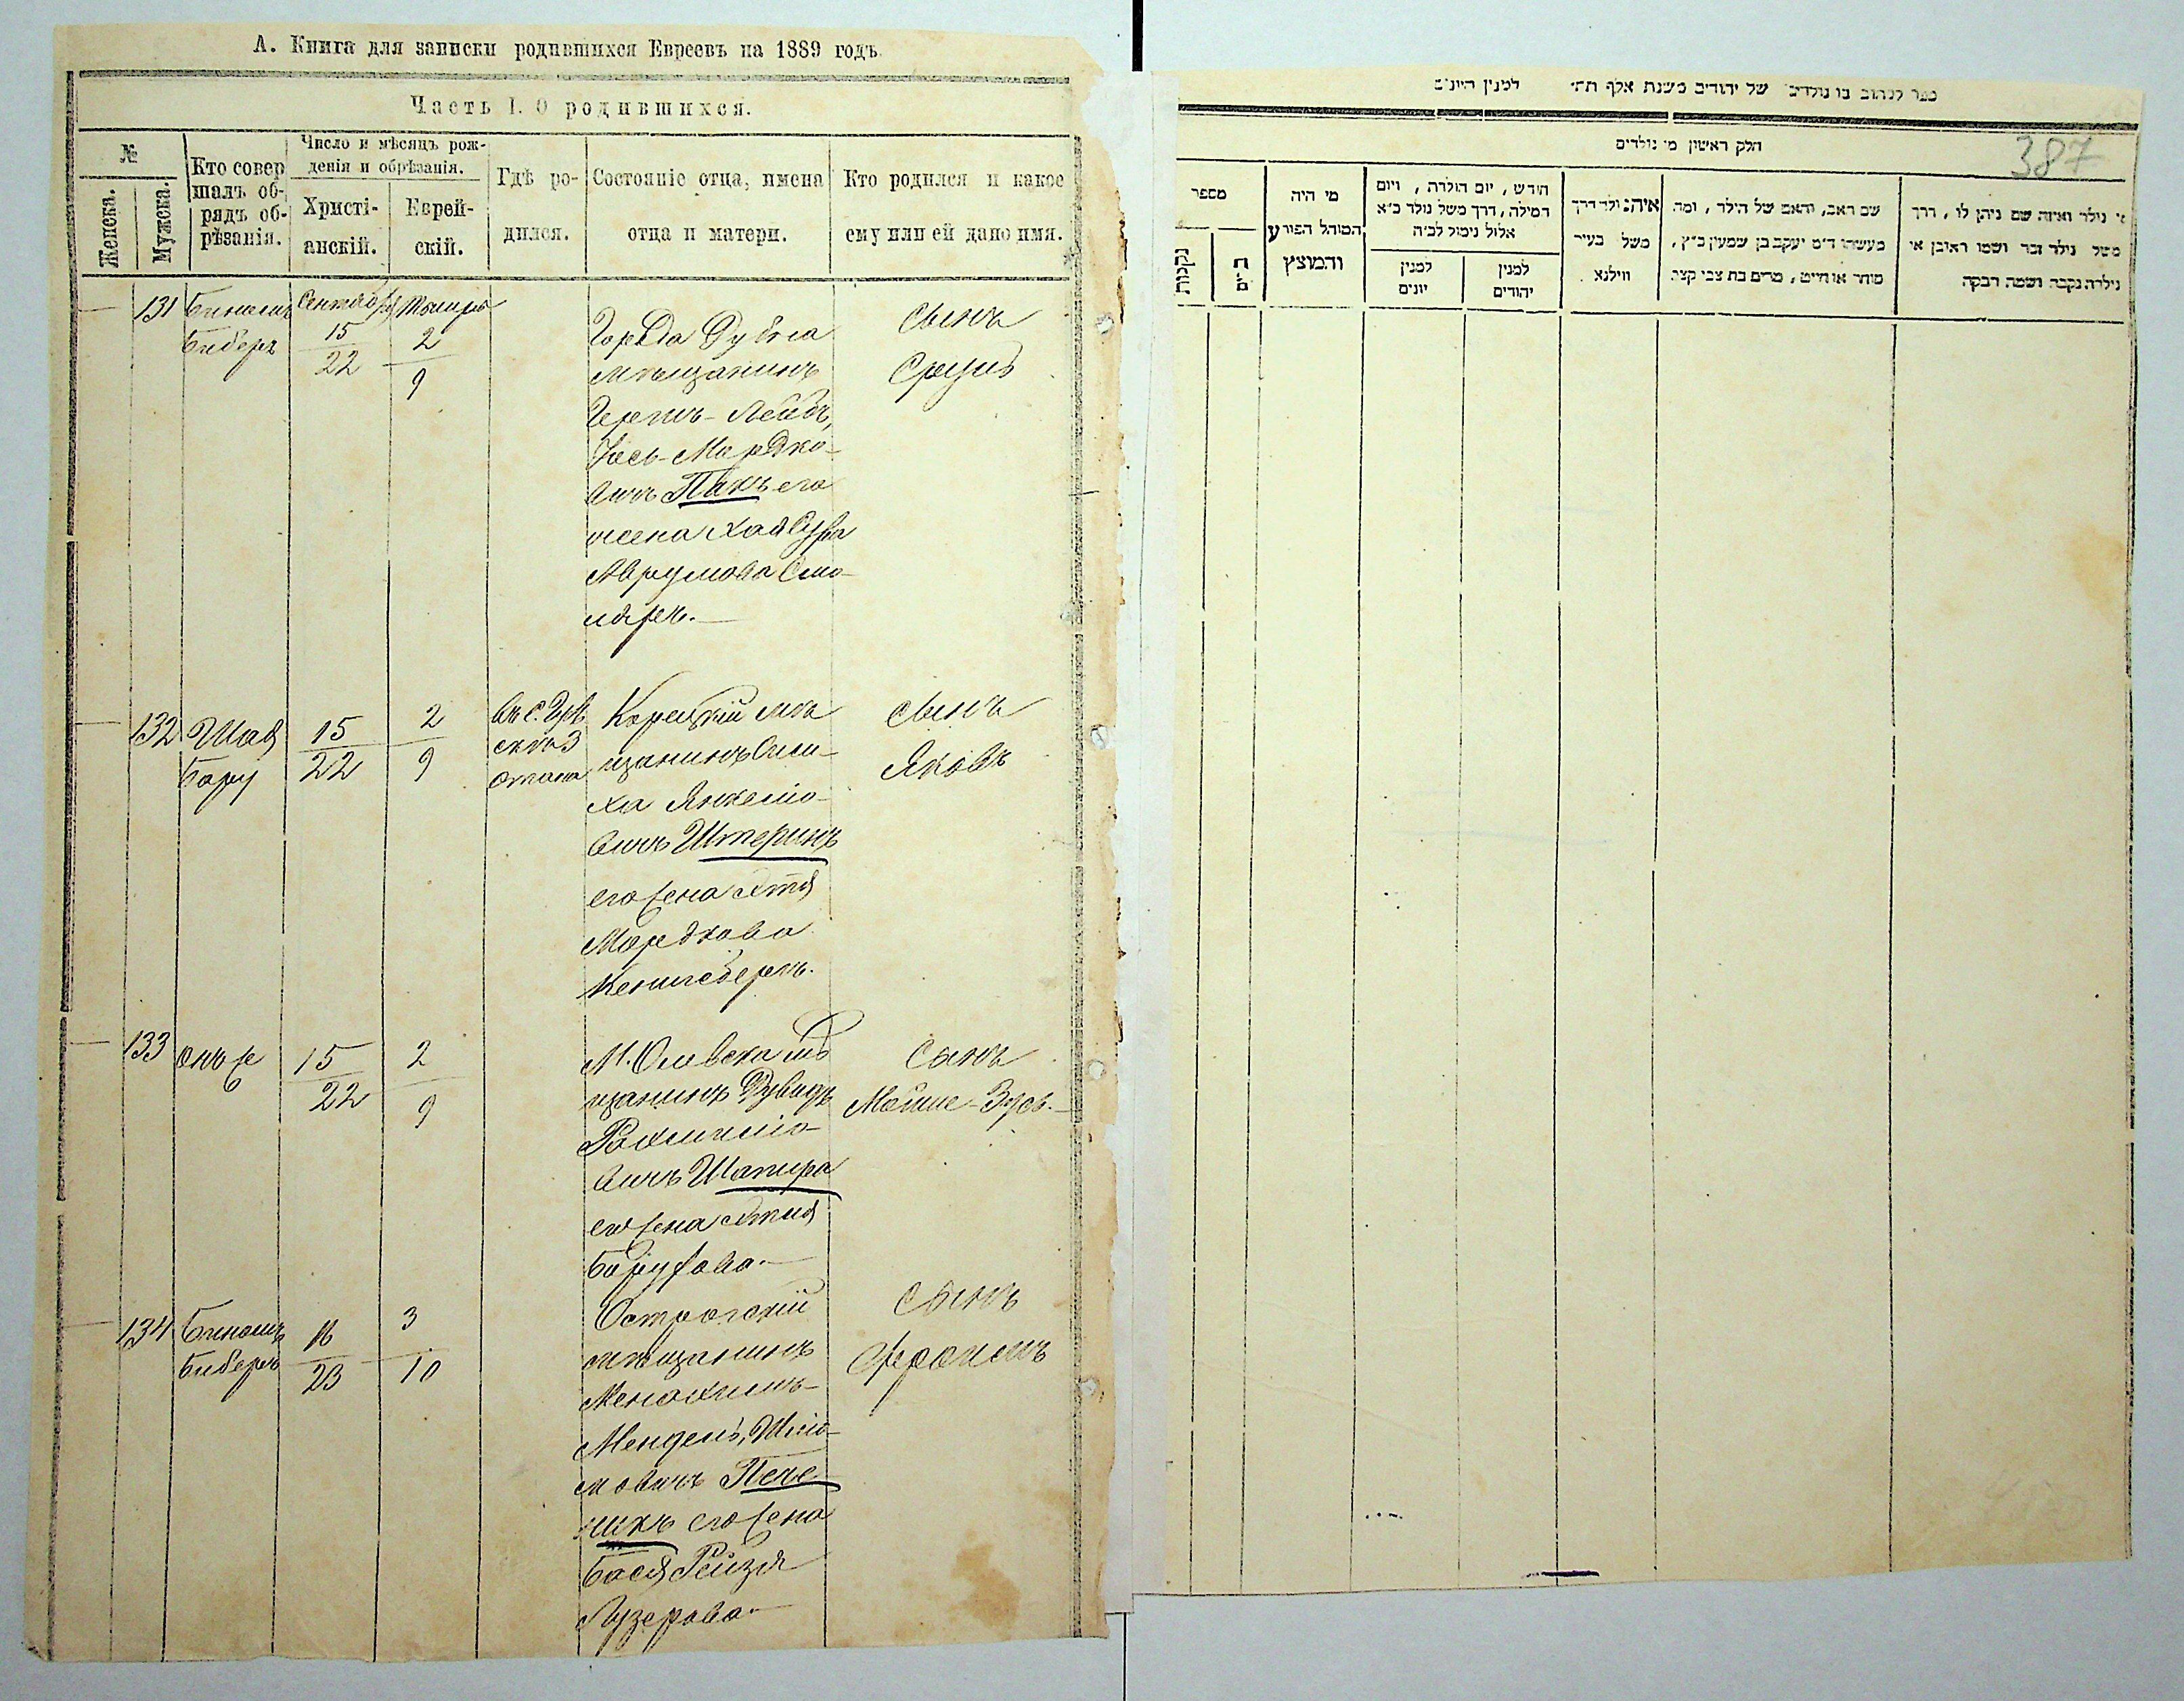 А. Книга для записки родившихся Евреевъ на 1889 годъ.
Часть I. О родившихся.
№
Женска.
Мужска.
Кто совер
шалъ об-
рядъ об-
рѣзанія.
Число и мѣсяцъ рож-
денія и обрѣзанія.
Христі-
анскій.
Еврей-
скій.
Гдѣ ро-
дился.
Состояніе отца, имена
отца и матери.
Кто родился и какое
ему или ей дано имя.
131
Биберъ
Сентября
15
22
2
9
Города Дубна
мѣщанинъ
Гершъ-Лейбъ,
Іось-Мордко-
вичъ Пакъ его
жена Хая Сура
Аврумова
сынъ
Сруль
132
Шая
Бару
15
22
2
9
Корецкій мѣ
щанинъ
Янкеліо-
вичъ Штеринъ
его жена
Мордкова
Кенигсбергъ.
сынъ
Яковъ
133
онъ же
15
22
2
9
М. Олевска мѣ
щанинъ Дувидъ
вичъ Шапира
его жена
Барухова.
Сынъ
Мойше-Зусь.
134
Биберъ
16
23
3
10
Острогскій
мѣщанинъ
Менахимъ-
Мендель, Шліо-
мовичъ Пече-
никъ его жена
Бася Рейзя
Лузерова
Сынъ
387
ספר לכתוב בו נולדים של יהודים משנת אלף תת׳ למנין היונים
חלק ראשון מ׳ נולדים
מספר
נקבות
מי היה
המוהל הפורע
והמוצץ
חודש, יום הולדת, ויום
המילה, דרך משל נולד כ״א
אלול נימול לכ״ה
למנין
יונים
למנין
יהודים
איה נולד דרך
משל בעיר
ווילנא
שם האב, והאם של הילד, ומה
מעשהו ד״מ יעקב בן שמעון כ״ץ,
סוחר או חייט, מרים בת צבי קצב
מי נולד ואיזה שם ניתן לו, דרך
משל נולד זכר ושמו ראובן או
נולדה נקבה ושמה רבקה